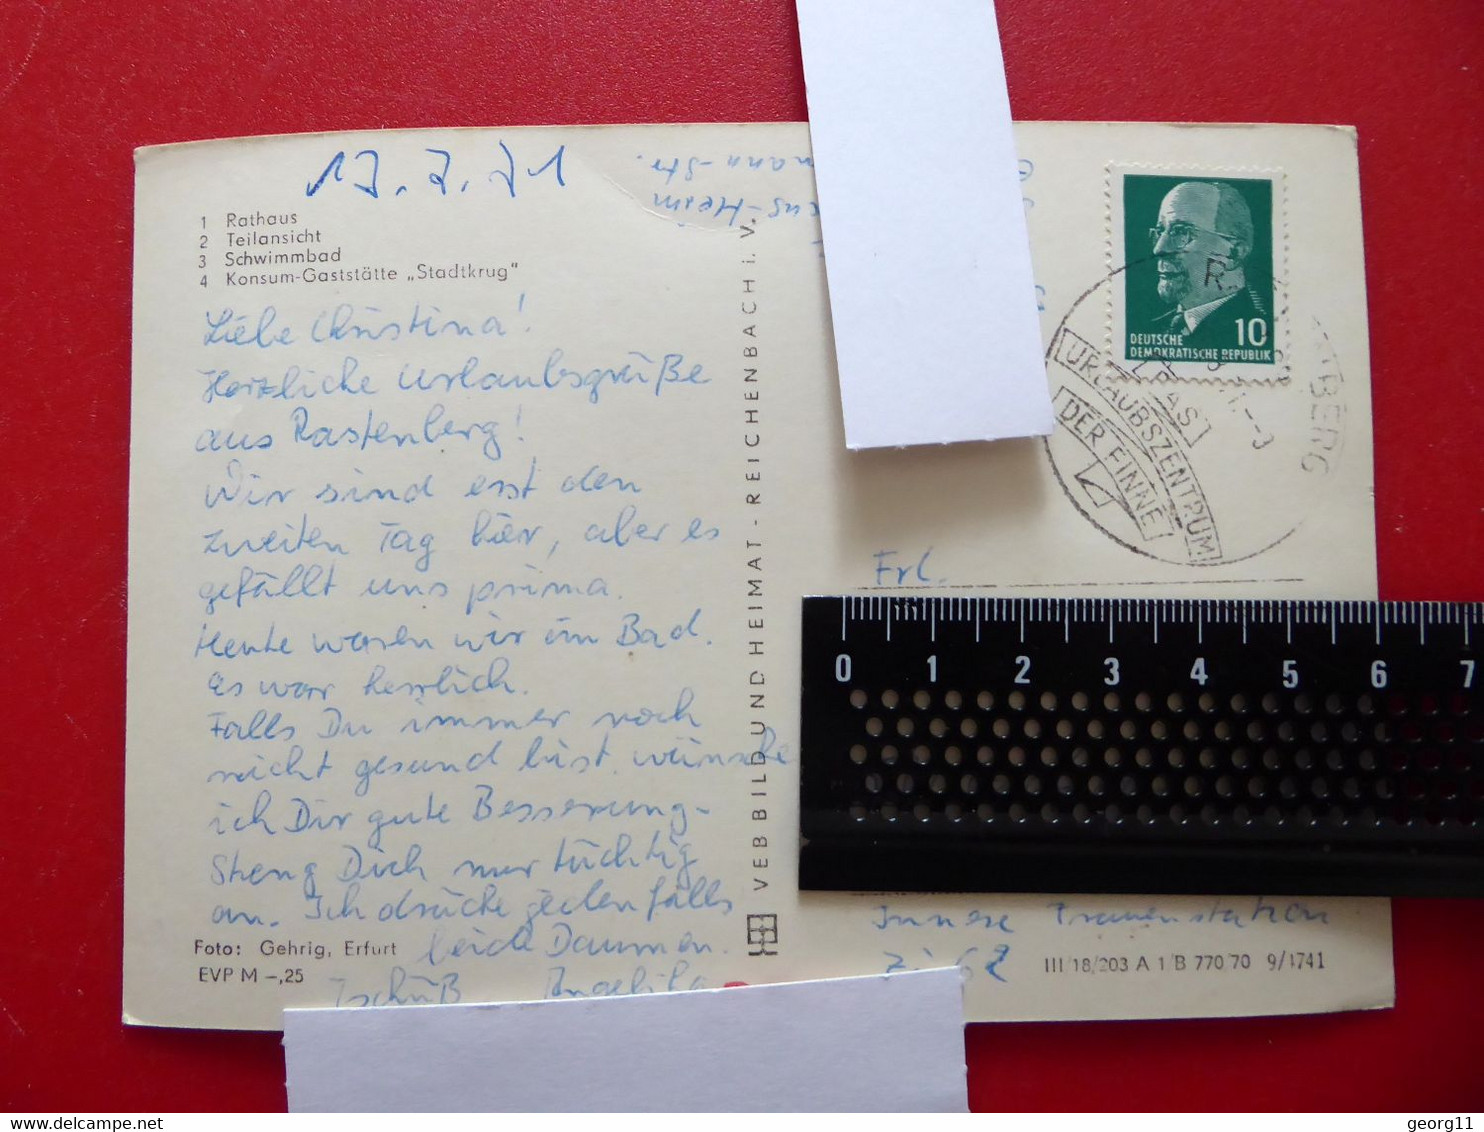 17.7.71
1 Rathaus
2 Teilansicht
3 Schwimmbad
4 Konsum-Gaststätte „Stadtkrug"
Liebe Christina!
Herzliche Urlaubsgrüße
aus Rastenberg!
Wir sind erst den
zweiten Tag hier, aber es
gefällt uns prima.
Heute waren wir im Bad.
Es war herrlich.
Falls Du immer noch
nicht gesund bist, wünsche
ich Dir gute Besserung.
Streng Dich nur tüchtig
an. Ich drücke jedenfalls
beide Daumen.
Tschüß Angelika
Foto: Gehrig, Erfurt
EVP M –,25
VEB BILD UND HEIMAT - REICHENBACH i. V.
mann-Str.
-Heim
DEUTSCHE
DEMOKRATISCHE REPUBLIK
10
BERG
URLAUBSZENTRUM
DER FINNE
Frl.
0 1 2 3 4 5 6 7
Innere Frauenstation
Zi 62
III/18/203 A 1/B 770/70 9/4741
georg11